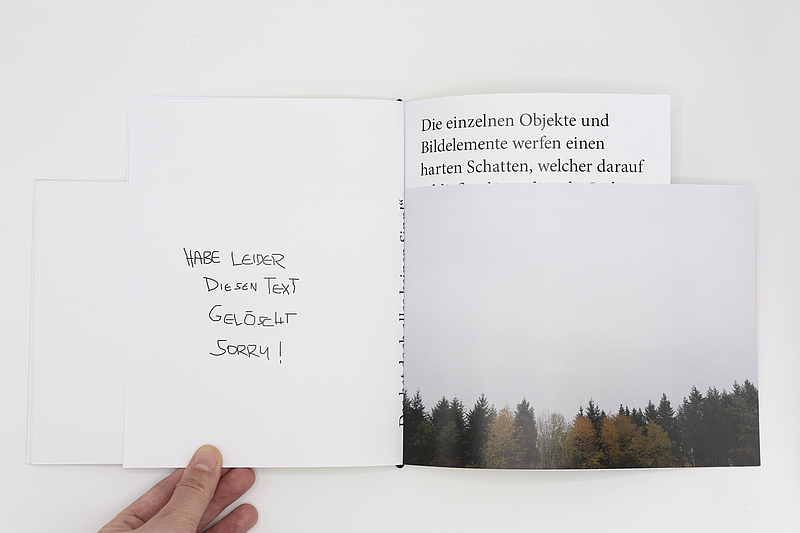 HABE LEIDER
DIESEN TEXT
GELÖSCHT
SORRY!
Die einzelnen Objekte und
Bildelemente werfen einen
harten Schatten, welcher darauf